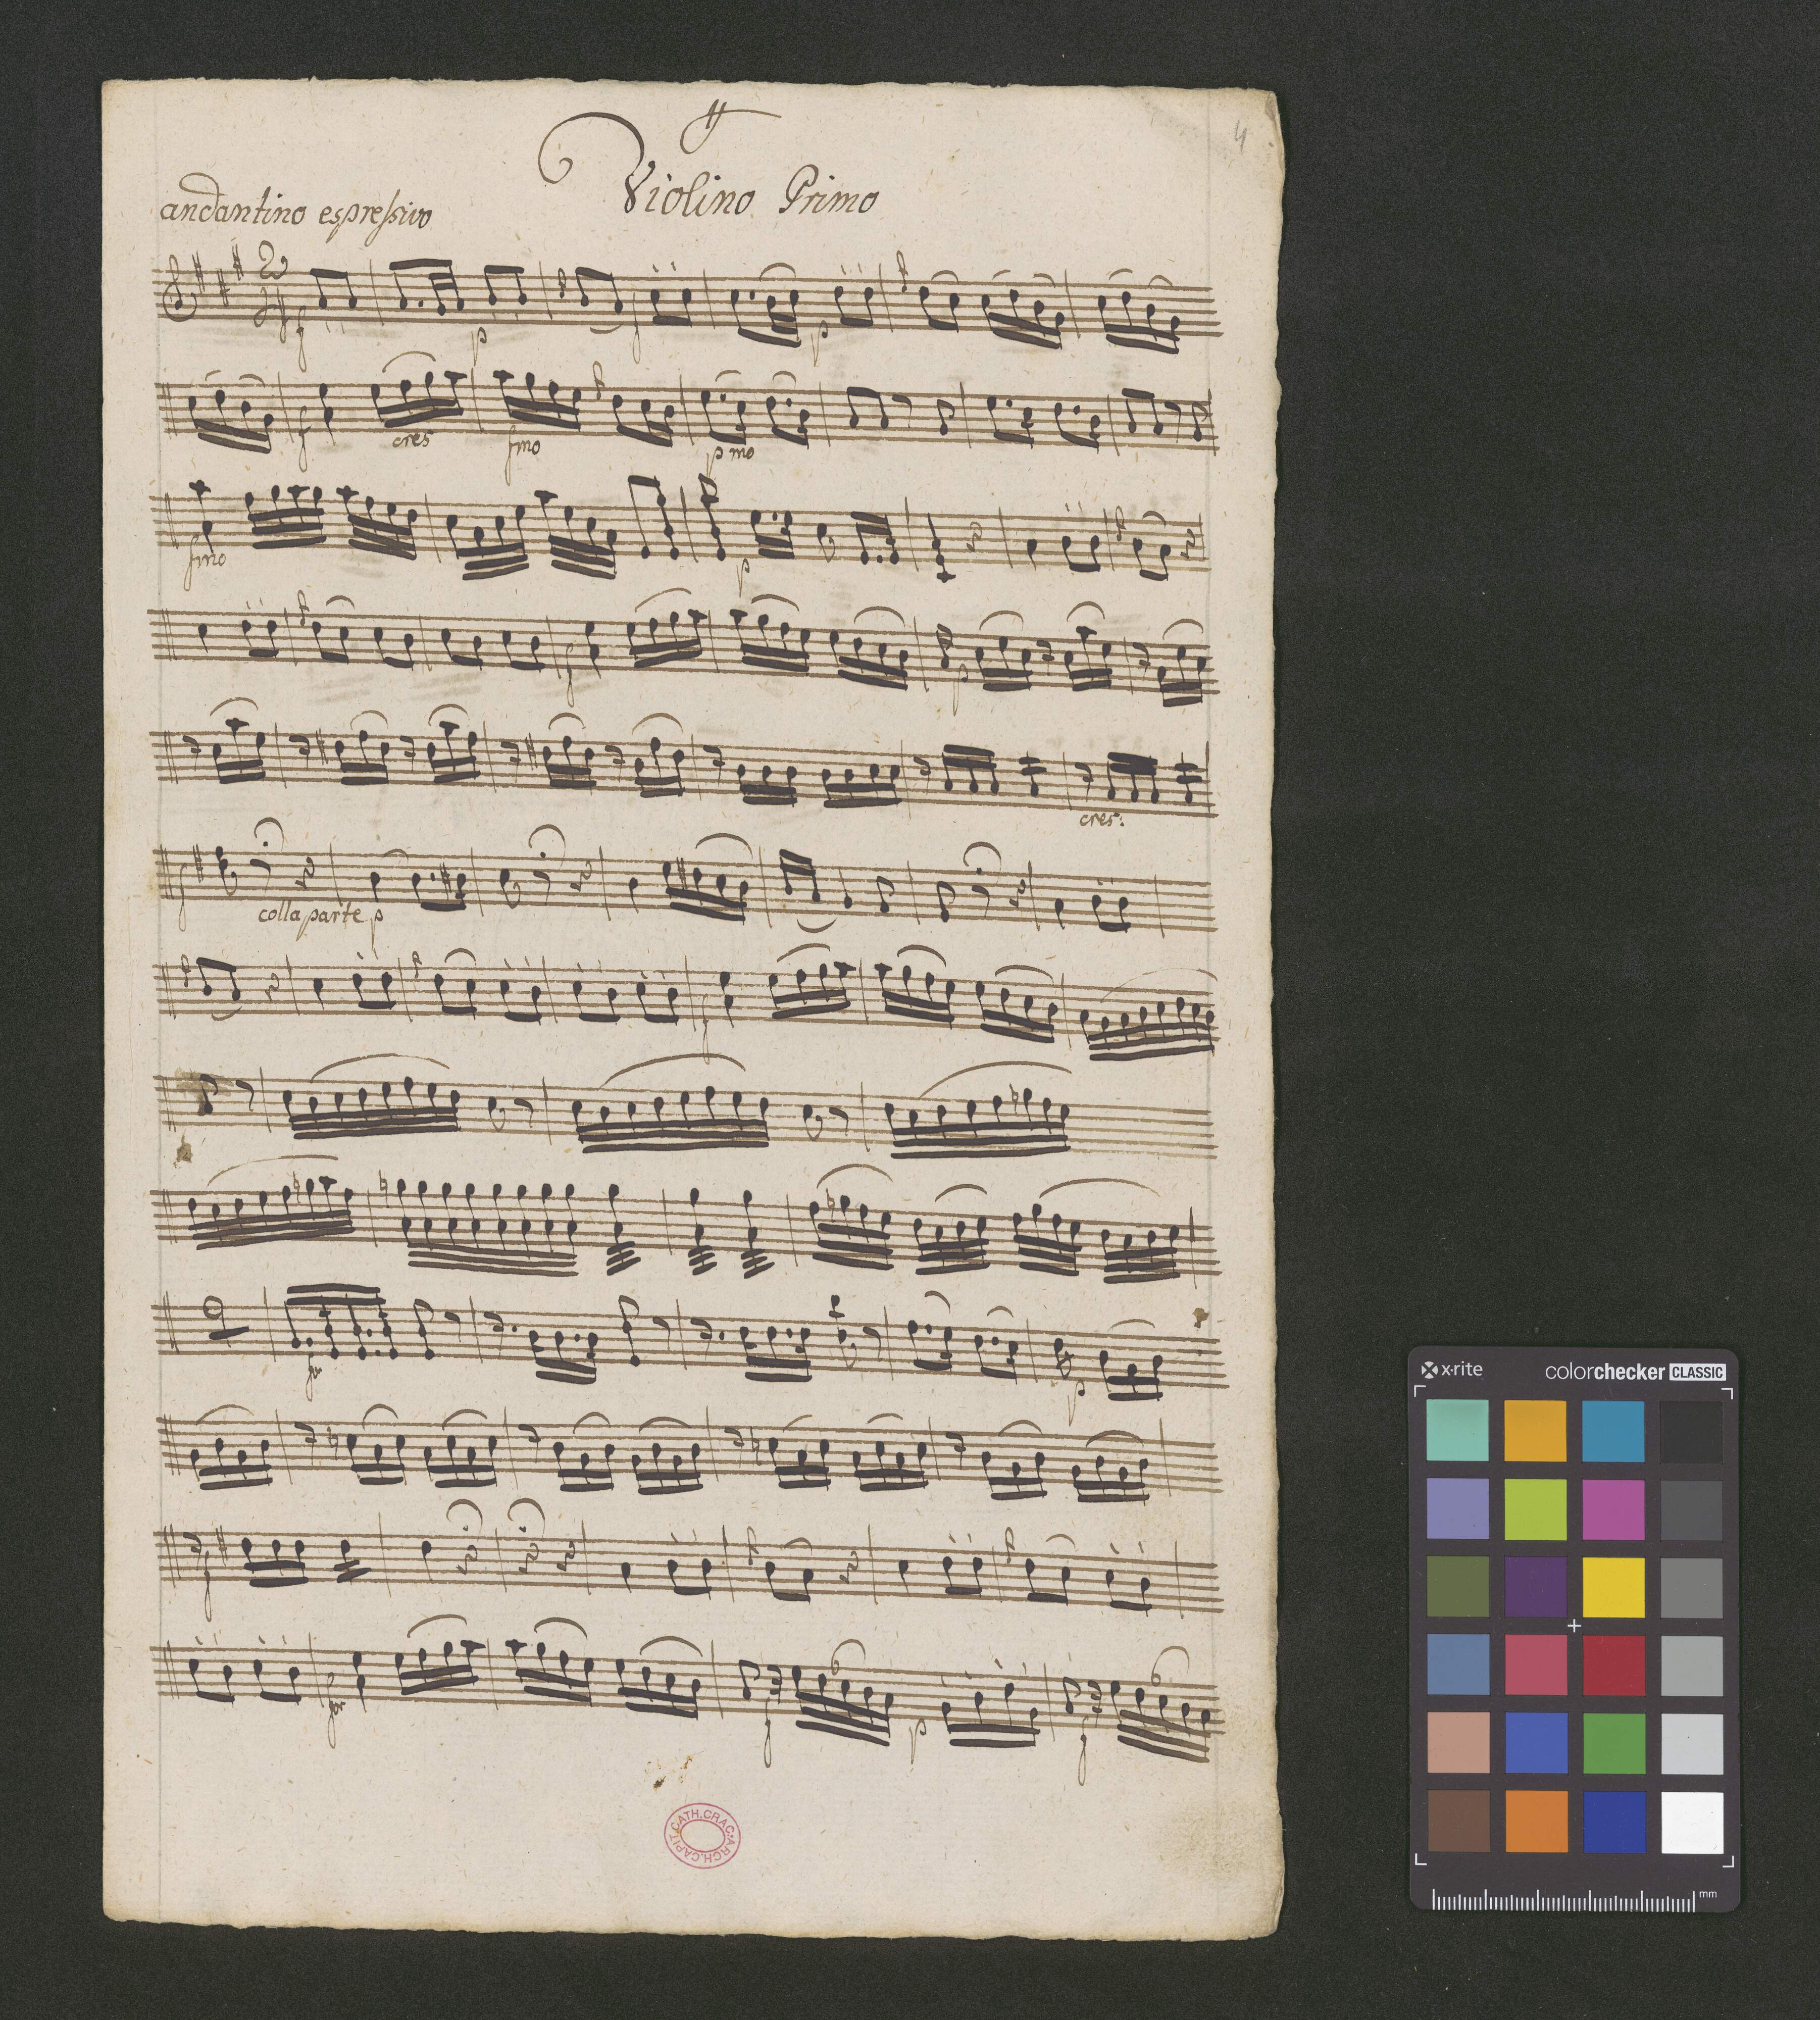 4
Violino Primo
andantino espressivo
2
4
f p f p
f cres fmo pmo
fmo p
f p
cres:
f colla parte p
f
for p
f
for f p f
CAPIT. CATH. CRAC. ARCH.
x-rite colorchecker CLASSIC
mm